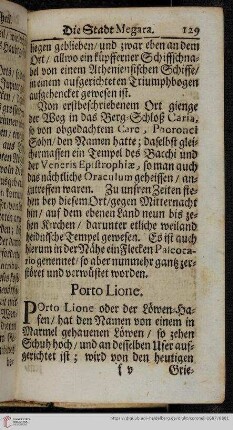 Die Stadt Megara. 129
liegen geblieben/ und zwar eben an dem
Ort/ allwo ein küpfferner Schiffschna-
bel von einem Atheniensischen Schiffe/
in einem aufgerichteten Triumphbogen
aufgehencket gewesen ist.
Von erstbeschriebenem Ort gienge
der Weg in das Berg-Schloß Caria,
so von obgedachtem Care, Phoronei
Sohn/ den Namen hatte; daselbst gleis-
chermassen ein Tempel des Bacchi und
der Veneris Epistrophiæ, so man auch
das nächtliche Oraculum geheissen/ an-
zutreffen waren. Zu unsren Zeiten ste-
hen bey diesem Ort/ gegen Mitternacht
hin/ auf dem ebenen Land neun bis ze-
hen Kirchen/ darunter etliche weiland
heidnische Tempel gewesen. Es ist auch
hierum in der Nähe ein Flecken Palcoca-
rio genennet/ so aber nunmehr gantz zer-
störet und verwüstet worden.
Porto Lione.
POrto Lione oder der Löwen-Ha-
fen/ hat den Namen von einem in
Marmel gehauenen Löwen/ so zehen
Schuh hoch/ und an desselben Ufer auf-
gerichtet ist; wird von den heutigen
Grie-